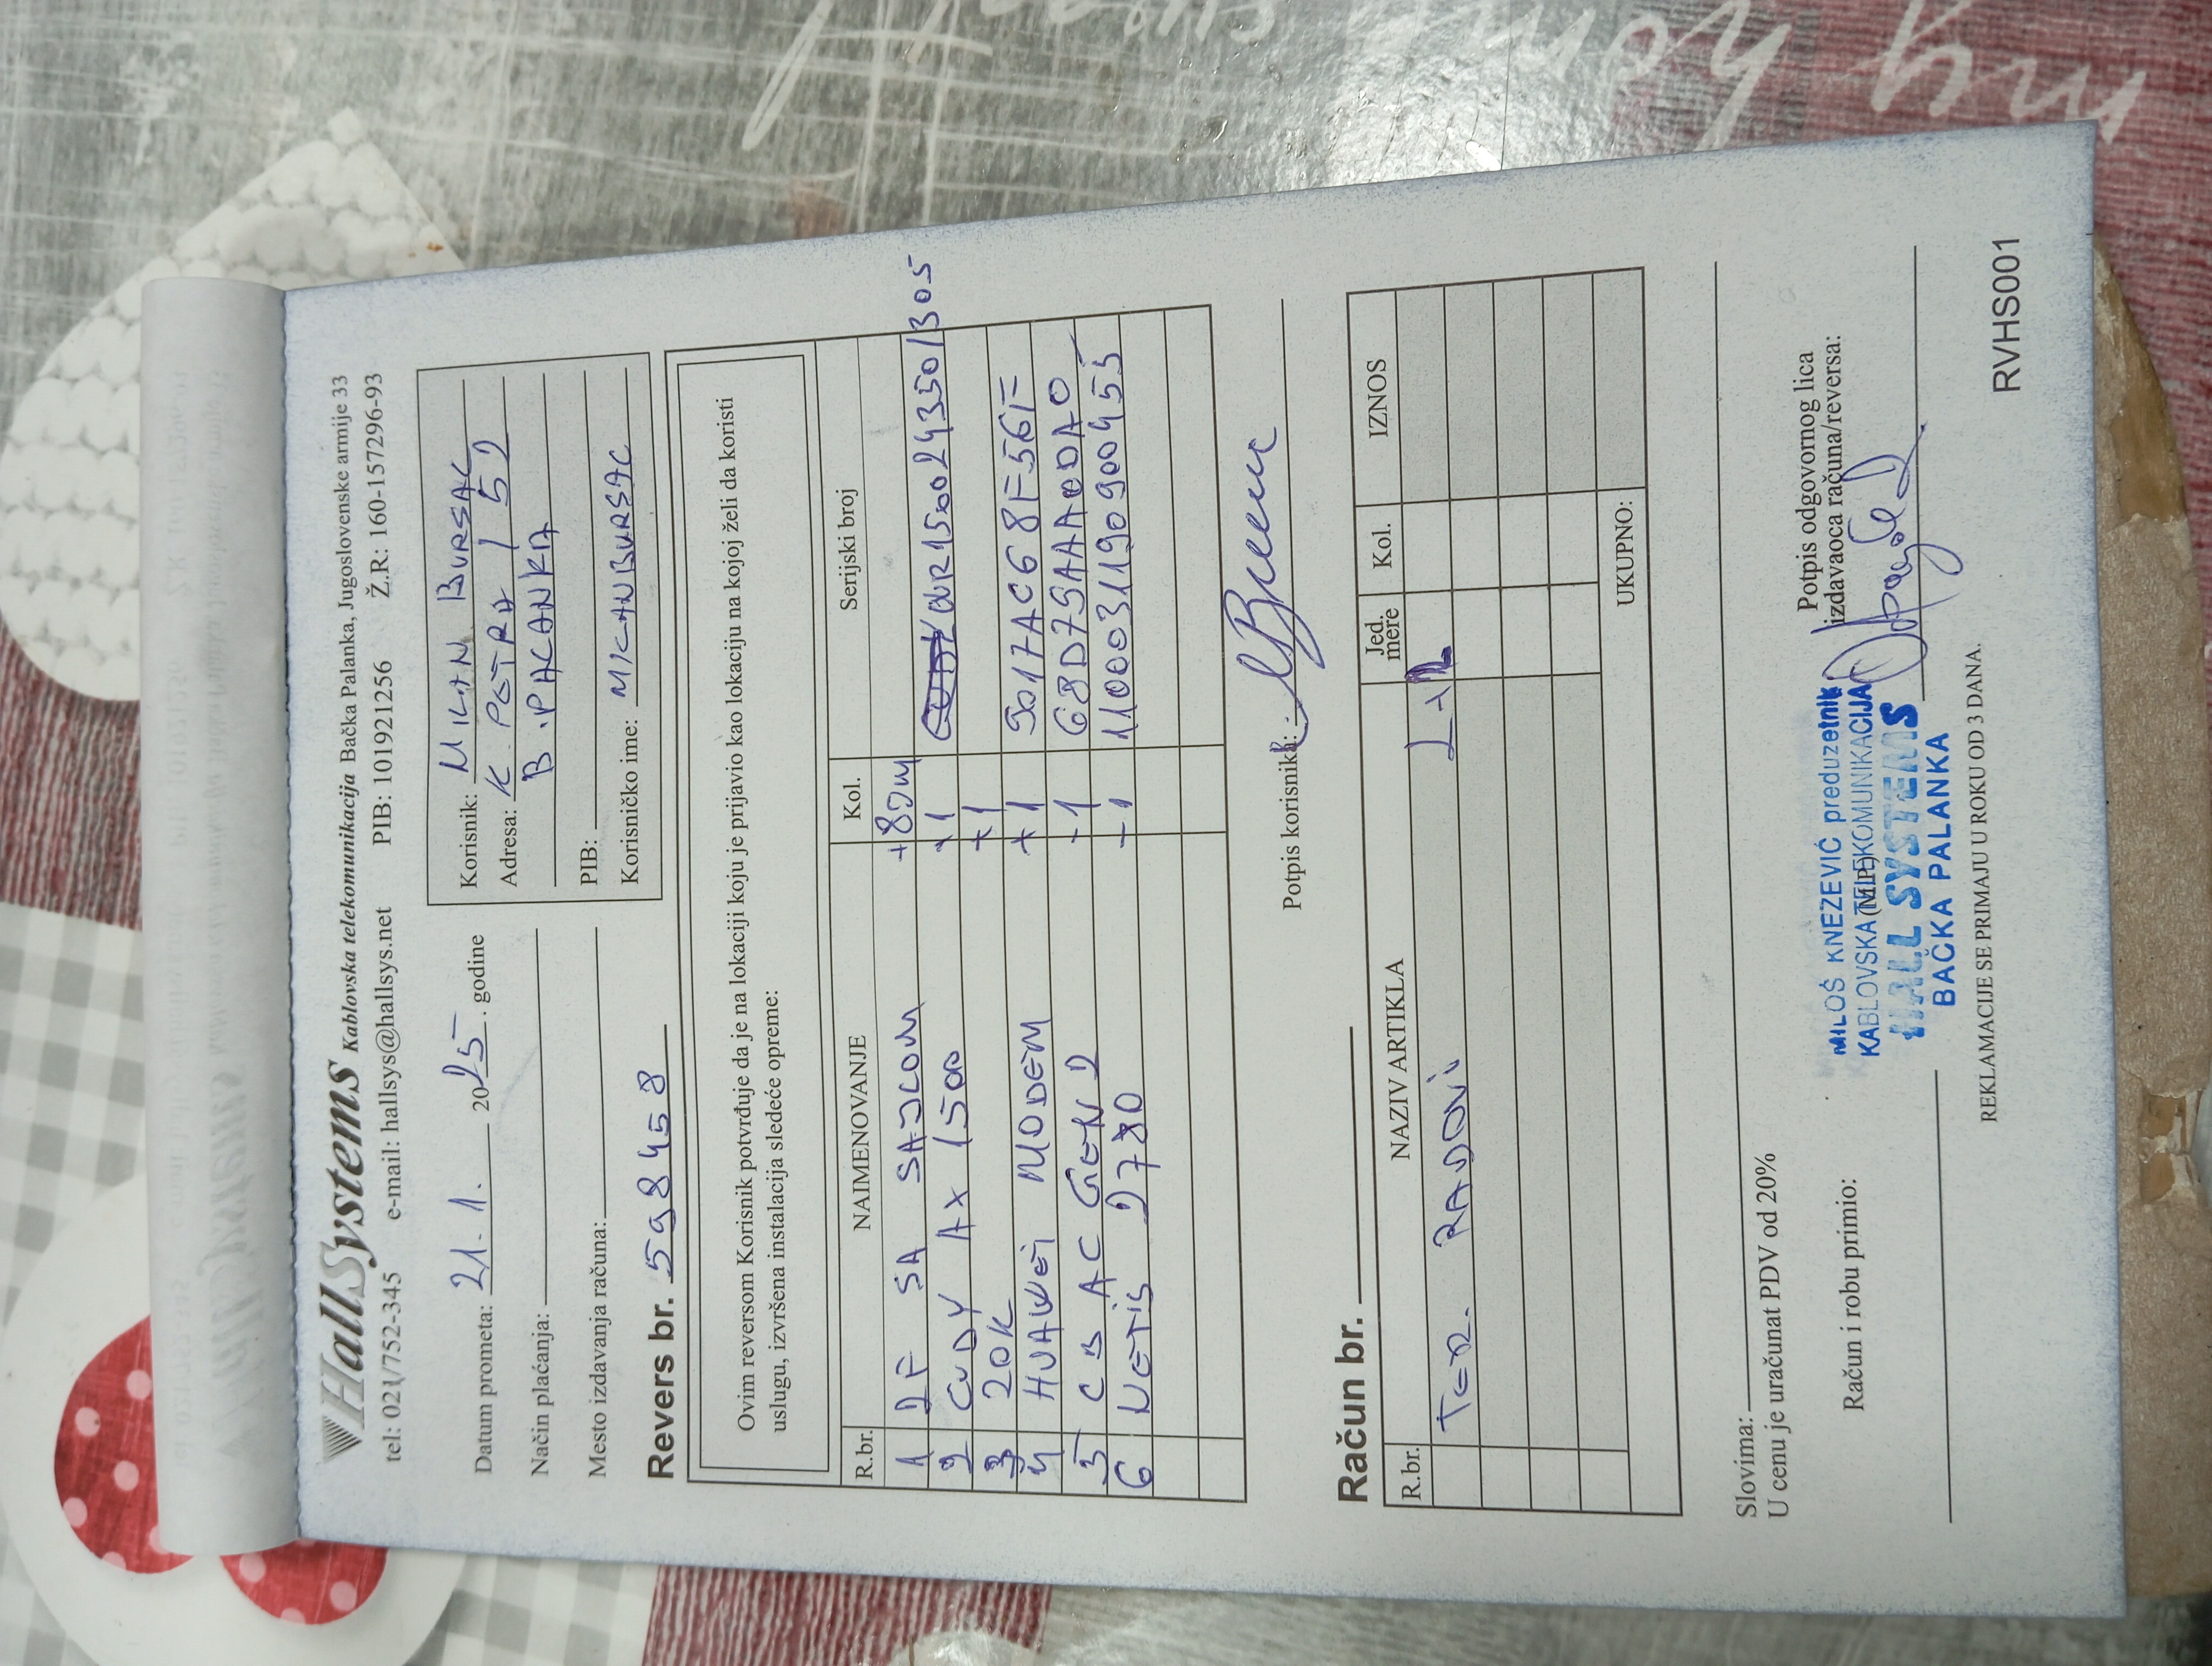 HallSystems Kablovska telekomunikacija Bačka Palanka, Jugoslovenske armije 33
tel: 021/752-345 e-mail: hallsys@hallsys.net PIB: 101921256 Ž.R: 160-157296-93
Datum prometa: 21.1. 2025. godine
Način plaćanja:
Mesto izdavanja računa:
Korisnik: MILAN BURSAĆ
Adresa: K PETRA I 52
B.PALANKA
PIB:
Korisničko ime: MILANBURSAC
Revers br. 598458
Ovim reversom Korisnik potvrđuje da je na lokaciji koju je prijavio kao lokaciju na kojoj želi da koristi
uslugu, izvršena instalacija sledeće opreme:
R.br. NAIMENOVANJE Kol. Serijski broj
1 2F SA SAJLOM +80m
2 CUDY AX 1500 +1 WR1500243501305
3 ZOK +1
4 HUAWEI MODEM +1 5017AC68F56F
5 C B AC GEN 2 -1
6 NETIS 2780 -1 1100031190900455
Potpis korisnika:
Račun br.
R.br. NAZIV ARTIKLA Jed. mere Kol. IZNOS
TER. RADOVI
UKUPNO:
Slovima:
U cenu je uračunat PDV od 20%
Račun i robu primio:
(M.P.)
Potpis odgovornog lica
izdavaoca računa/reversa:
MILOŠ KNEZEVIĆ preduzetnik
KABLOVSKA TELEKOMUNIKACIJA
HALL SYSTEMS
BAČKA PALANKA
REKLAMACIJE SE PRIMAJU U ROKU OD 3 DANA.
RVHS001
my hom